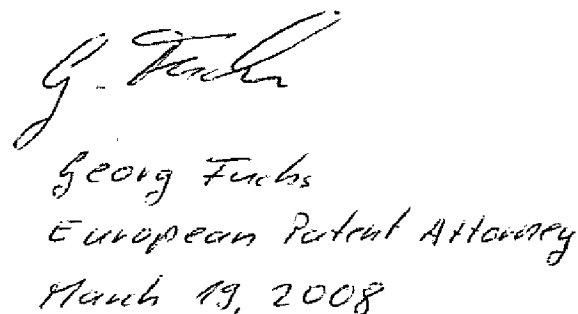 G. Fuchs
Georg Fuchs
European Patent Attorney
March 19, 2008